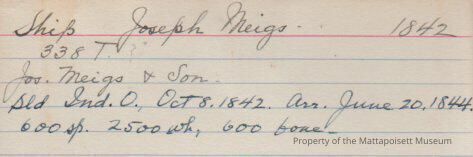 Ship Joseph Meigs. 1842
338 T.
Jos. Meigs & Son.
Sld Ind. O., Oct 8, 1842. Arr. June 20, 1844.
600 sp. 2500 wh, 600 bone.
Property of the Mattapoisett Museum